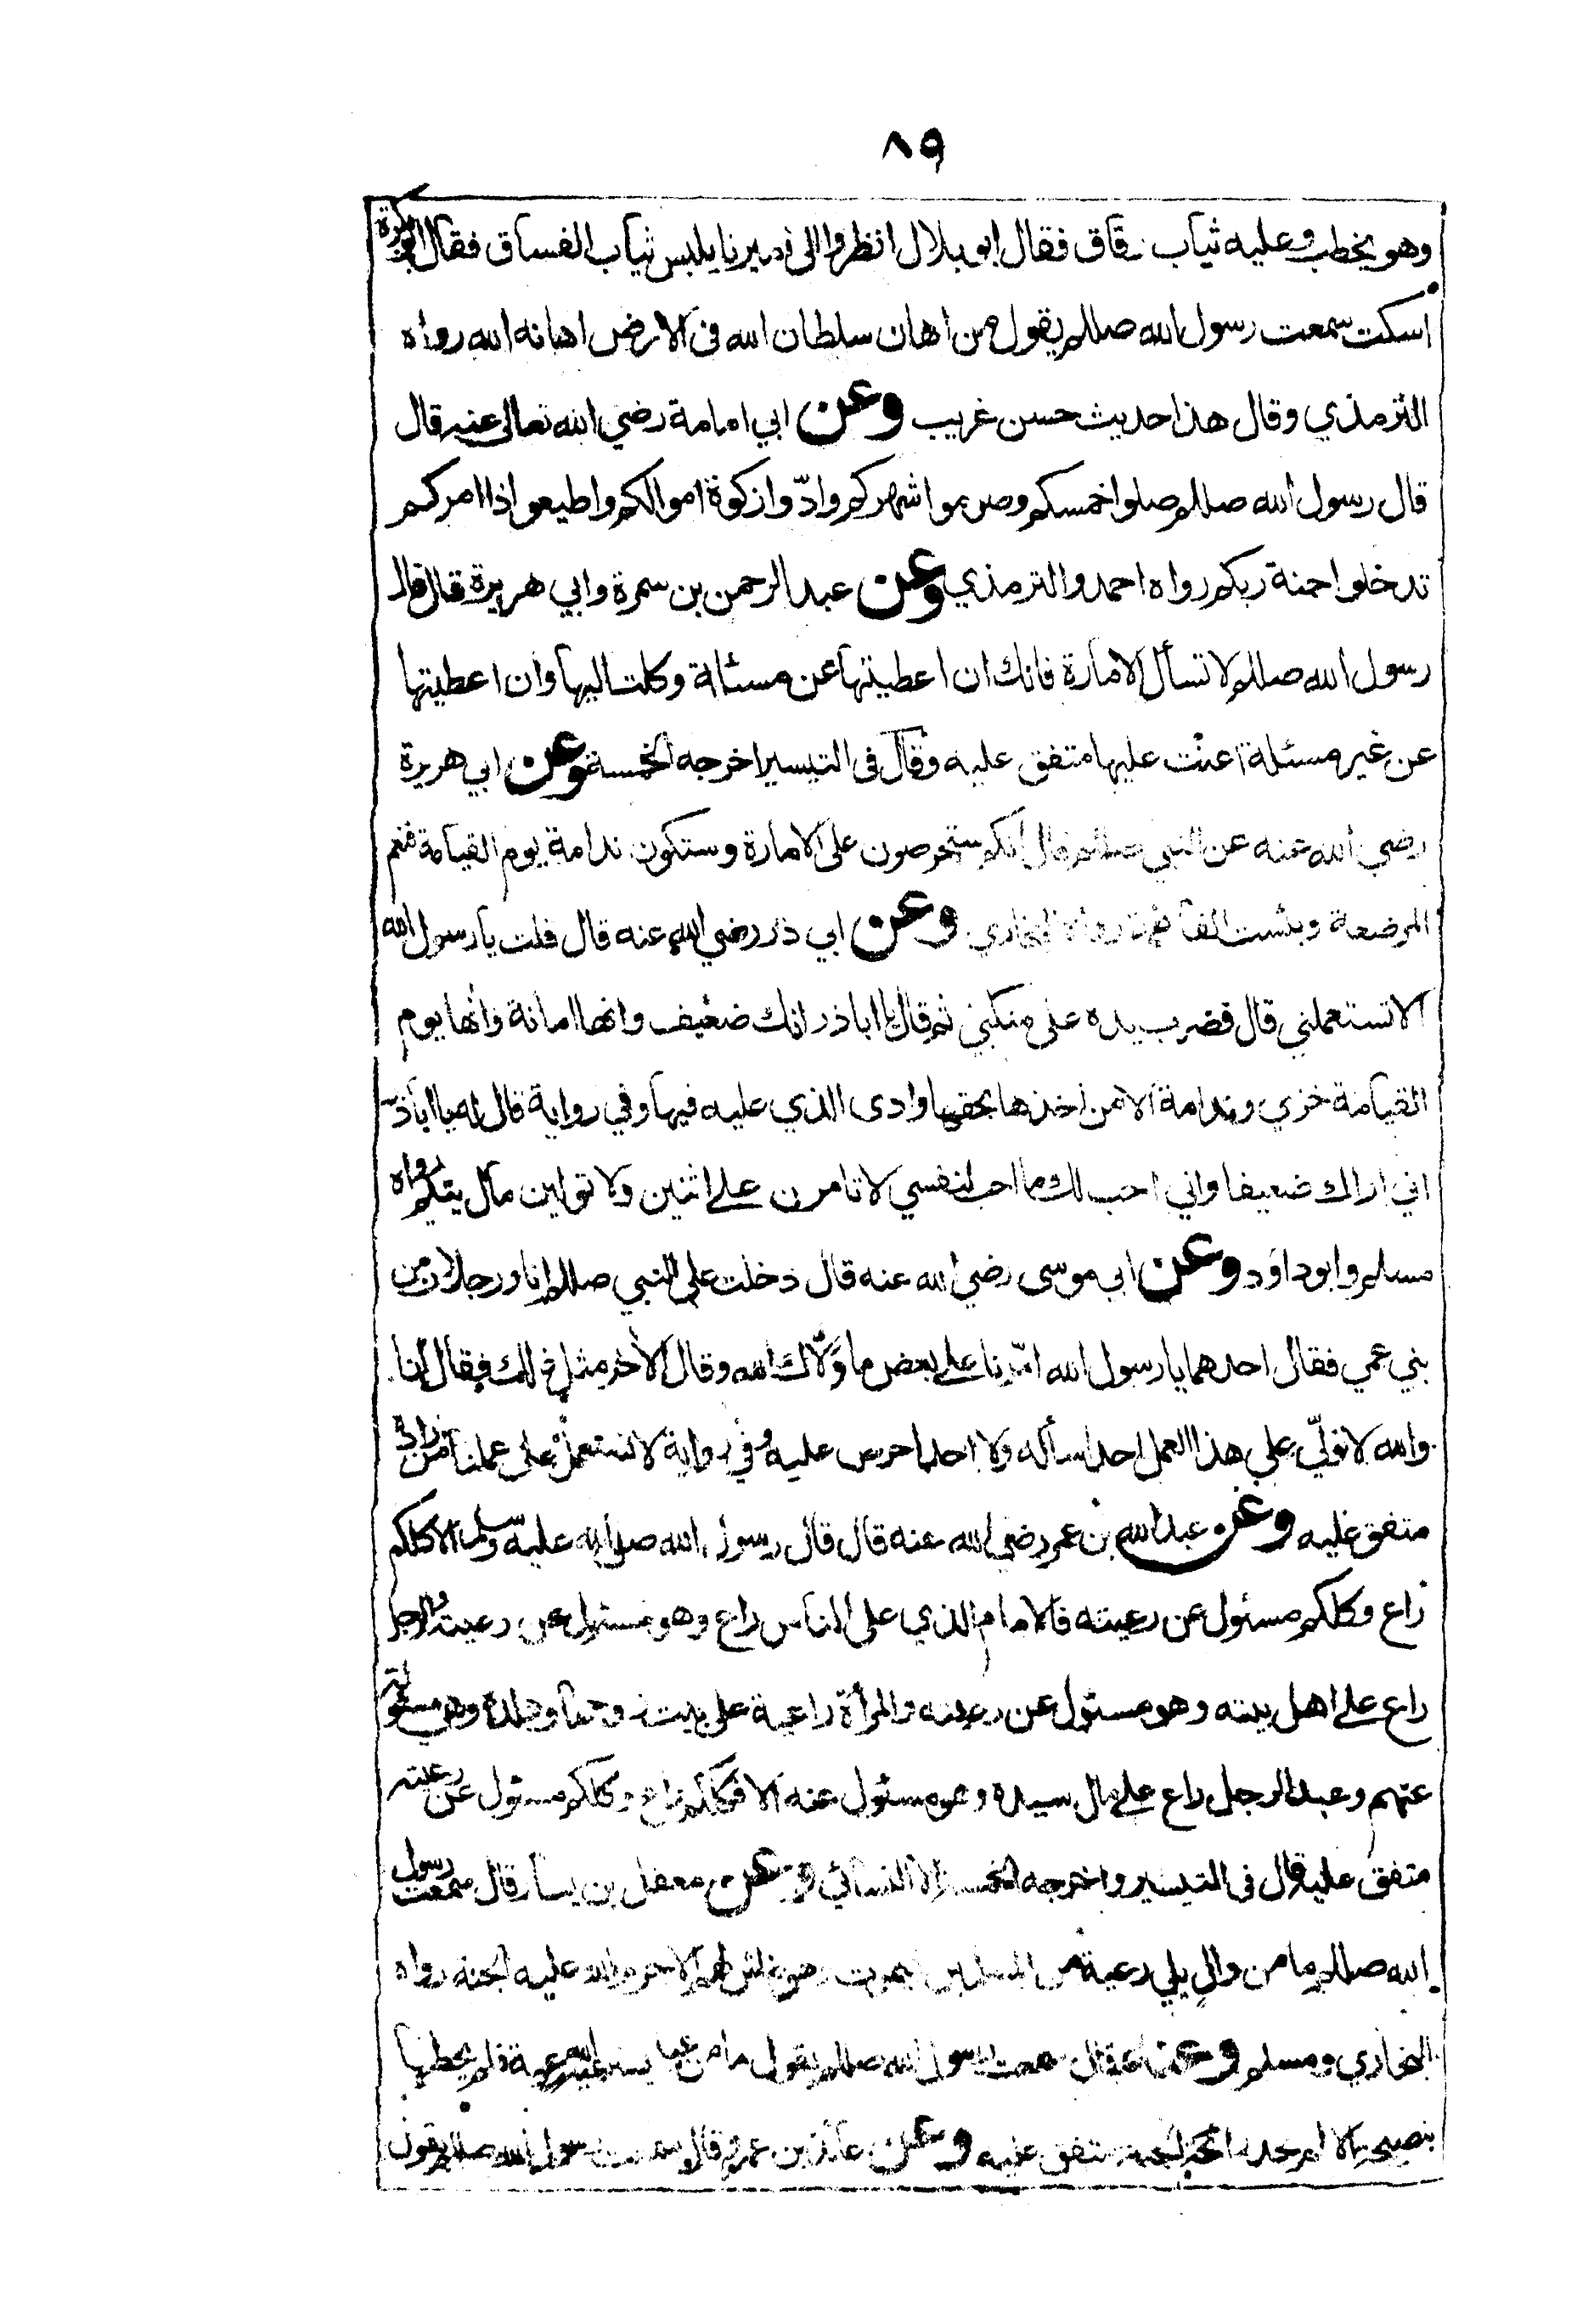 ٨٩
وهو يخطب وعليه ثياب رقاق فقال ابو بلال انظروا الى اميرنا يلبس ثياب الفساق فقال ابو بكرة
اسكت سمعت رسول الله صللم يقول من اهان سلطان الله فى الارض اهانه الله رواه
الترمذي وقال هذا حديث حسن غريب وعن ابي امامة رضي الله تعالى عنه قال
قال رسول الله صللم صلوا خمسكم وصوموا شهركم وادّوا زكوة اموالكم واطيعوا ذا امركم
تدخلوا جنة ربكم رواه احمد والترمذي وعن عبد الرحمن بن سمرة وابي هريرة قال قال
رسول الله صللم لا تسأل الامارة فانك ان اعطيتها عن مسئلة وكلت اليها وان اعطيتها
عن غير مسئلة اعنت عليها متفق عليه وقال فى التيسير اخرجه الخمسة وعن ابي هريرة
رضي الله عنه عن النبي صللم قال انكم ستحرصون على الامارة وستكون ندامة يوم القيامة فنعم
المرضعة وبئست الفاطمة رواه البخاري وعن ابي ذر رضي الله عنه قال قلت يا رسول الله
الا تستعملني قال فضرب بيده على منكبي ثم قال يا اباذر انك ضعيف وانها امانة وانها يوم
القيامة خزي وندامة الا من اخذها بحقها وادى الذي عليه فيها وفي رواية قال له يا اباذر
اني اراك ضعيفا واني احب لك ما احب لنفسي لا تامرن على اثنين ولا تولين مال يتيم رواه
مسلم وابو داود وعن ابي موسى رضي الله عنه قال دخلت على النبي صللم انا ورجلان من
بني عمي فقال احدهما يا رسول الله امّرنا على بعض ما ولّاك الله وقال الآخر مثل ذلك فقال انا
والله لا نولّي على هذا العمل احدا سأله ولا احدا حرص عليه وفي رواية لا نستعمل على عملنا من اراده
متفق عليه وعن عبد الله بن عمر رضي الله عنه قال قال رسول الله صلى الله عليه وسلم الا كلكم
راع وكلكم مسئول عن رعيته فالامام الذي على الناس راع وهو مسئول عن رعيته والرجل
راع على اهل بيته وهو مسئول عن رعيته والمرأة راعية على بيت زوجها وولده وهي مسئولة
عنهم وعبد الرجل راع على مال سيده وهو مسئول عنه الا فكلكم راع وكلكم مسئول عن رعيته
متفق عليه قال فى التيسير واخرجه الخمسة الا النسائي وعن معقل بن يسار قال سمعت رسول
الله صللم ما من والٍ يلي رعية من المسلمين فيموت وهو غاش لهم الا حرم الله عليه الجنة رواه
البخاري ومسلم وعنه قال سمعت رسول الله صللم يقول ما من عبد يسترعيه الله رعية فلم يحطها
بنصيحة الا لم يجد رائحة الجنة متفق عليه وعن عائذ بن عمرو قال سمعت رسول الله صللم يقول